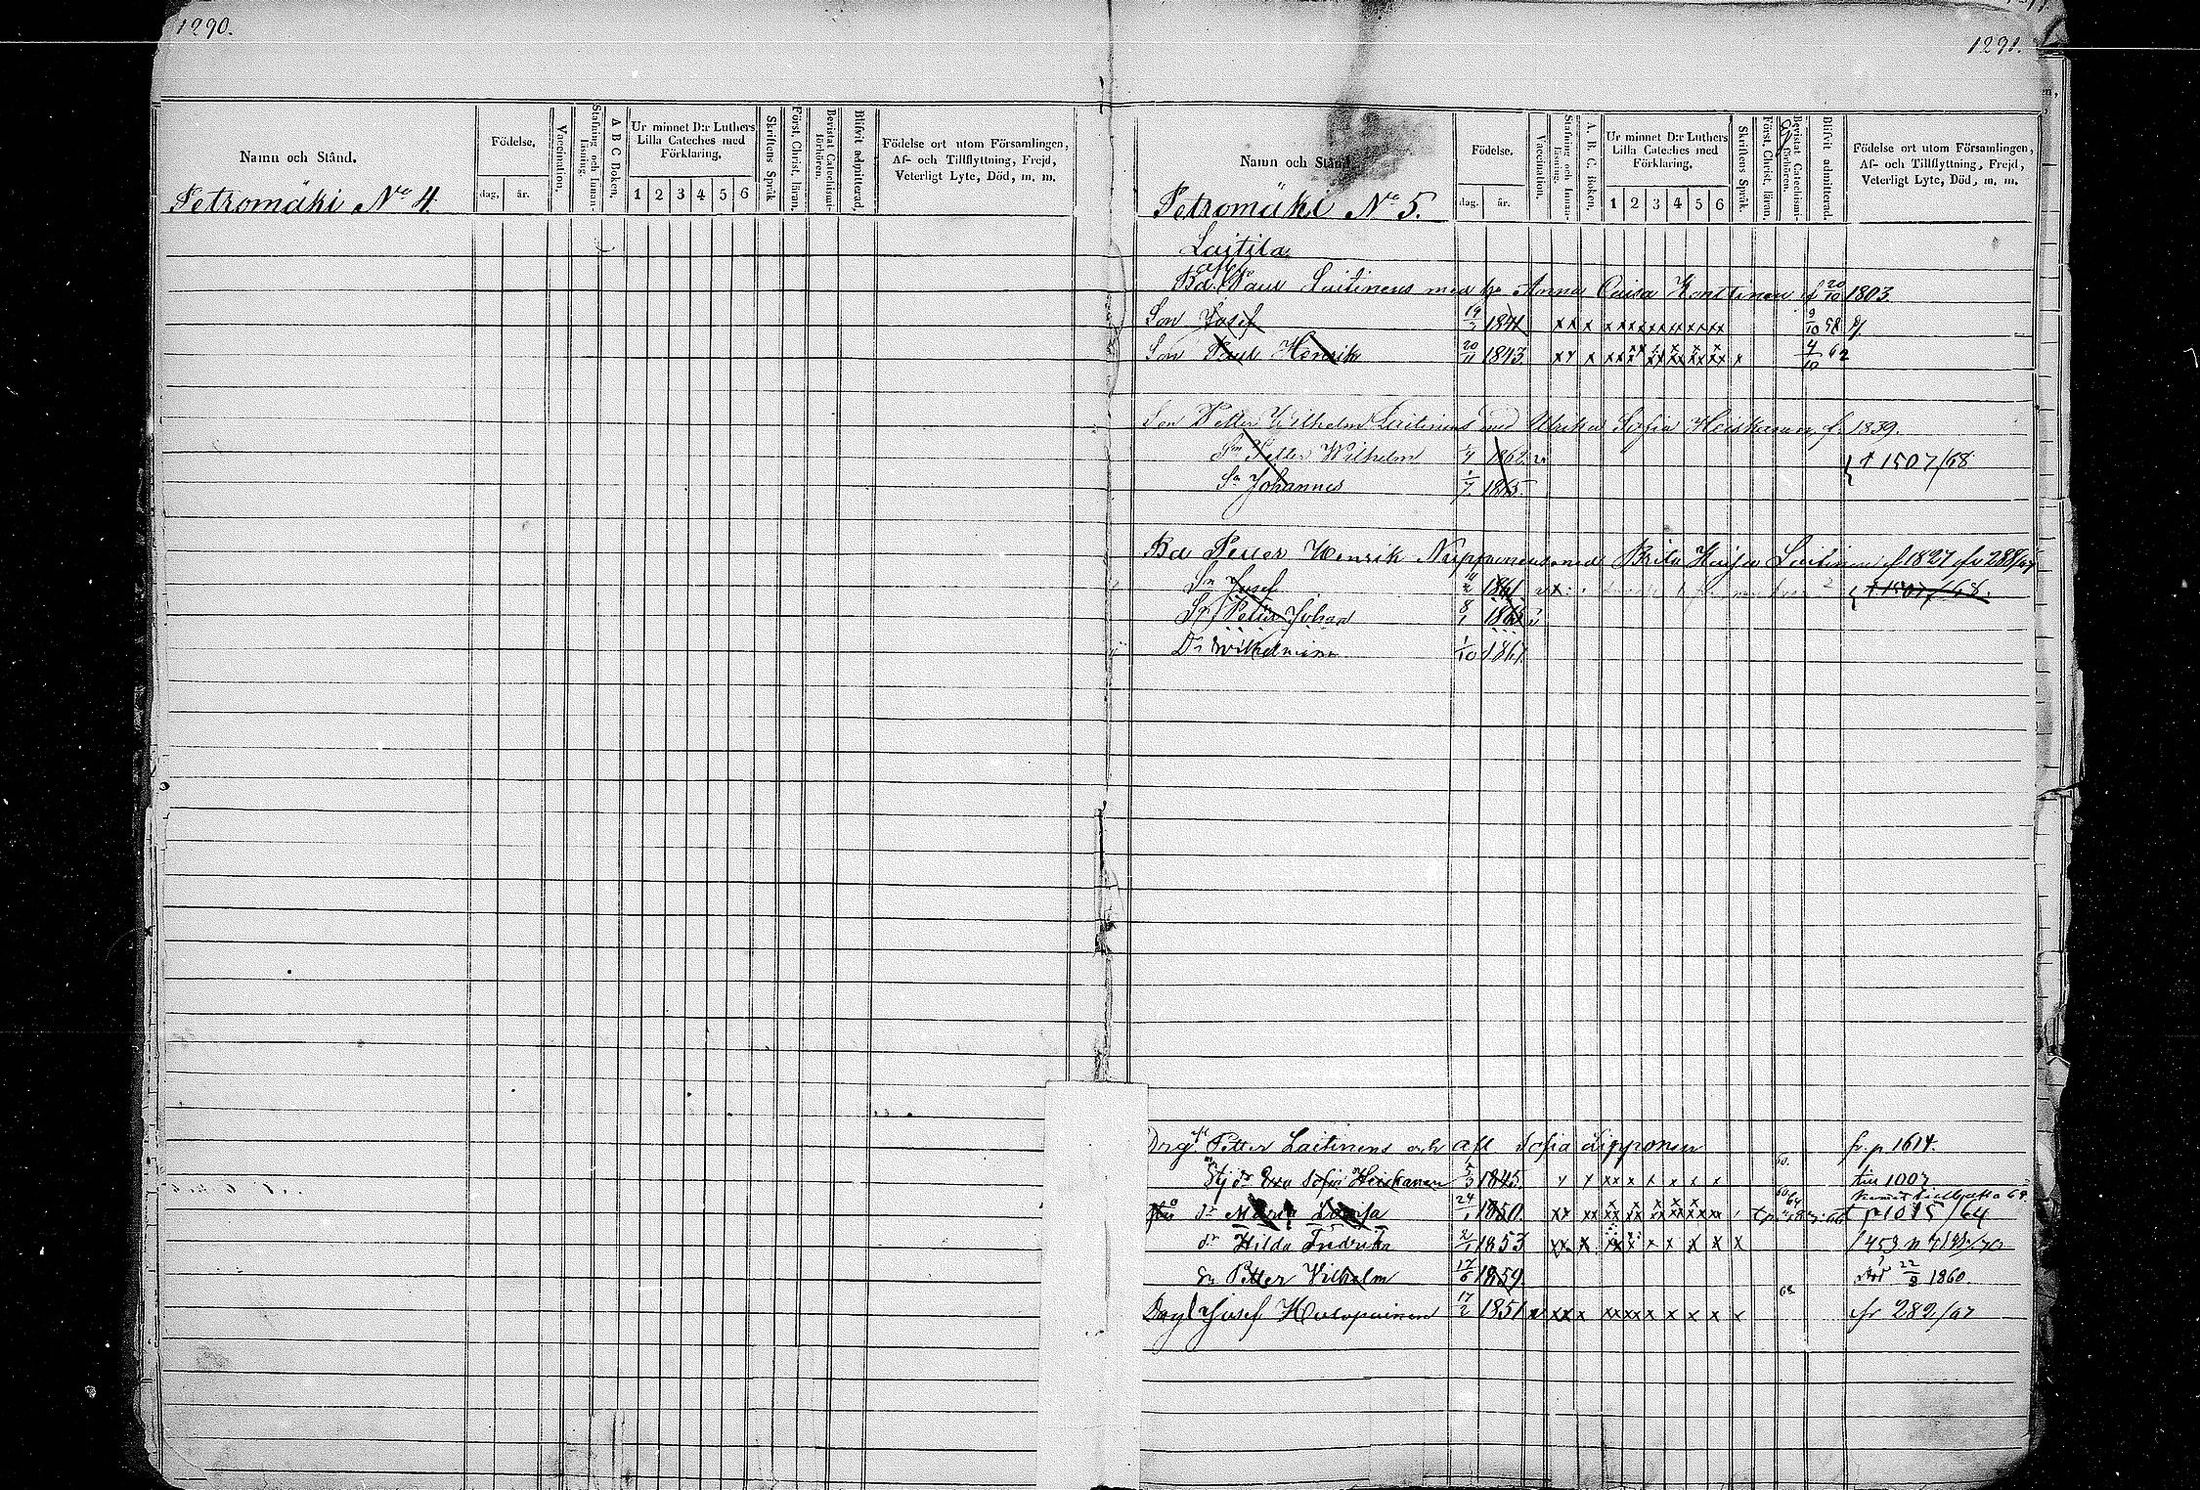 1290.
Namn och Stånd.
Födelse.
dag. år.
Vaccination.
Stafning och Innanläsning.
A B C Boken.
Ur minnet D:r Luthers Lilla Cateches med Förklaring.
1 2 3 4 5 6
Skriftens Språk
Först. Christ. läran.
Bevistat Catechismiförhören.
Blifvit admitterad.
Födelse ort utom Församlingen, Af- och Tillflyttning, Frejd, Veterligt Lyte, Död, m. m.
Petromäki No 4.
1291.
Namn och Stånd.
Födelse.
dag. år.
Vaccination.
Stafning och Innanläsning.
A. B. C. Boken.
Ur minnet D:r Luthers Lilla Cateches med Förklaring.
1 2 3 4 5 6
Skriftens Språk.
Först. Christ. läran.
Bevistat Catechismiförhören.
Blifvit admitterad.
Födelse ort utom Församlingen, Af- och Tillflyttning, Frejd, Veterligt Lyte, Död, m. m.
Petromäki No 5.
Laitila
Bd. Paul Laitinens med Anna Caisa Konttinen f 20/10 1803.
Son Josef 1841 x x x x x x x x x x x 9/10 58
Son Paul Henrik 20/11 1843. x x x x x x x x x x 4/10 62
Son Petter Wilhelm Laitinens med Ulrika Sofia Heiskanen f. 1839.
Sn Petter Wilhelm 1862 1507/68
Sn Johannes 1/7 1865.
Bd Petter Henrik Nupponens med Brita Kaisa Laitinen f 1827 fr 288/67
Sn Josef 1861 1507/68.
Sn Petter Johan 8/1 186
Dr Wilhelmina 1/10 1861
Drg Petter Laitinens och Afl Sofia Lipponen fr. p 1614.
Stj dr Eva Sofia Heiskanen 1845 x x x x x x x x till 1007
dr Maria Lovisa 24/1 1850. xx xx xx xx xx xx p 1015/64
dr Hilda Fredrika 2/1 1853 x x x x x x x x x
Sn Petter Vilhelm 17/6 1859 död 22/8 1860
Josef Huлopainen 17/2 1851 x x x x x x x x x x x fr 282/67